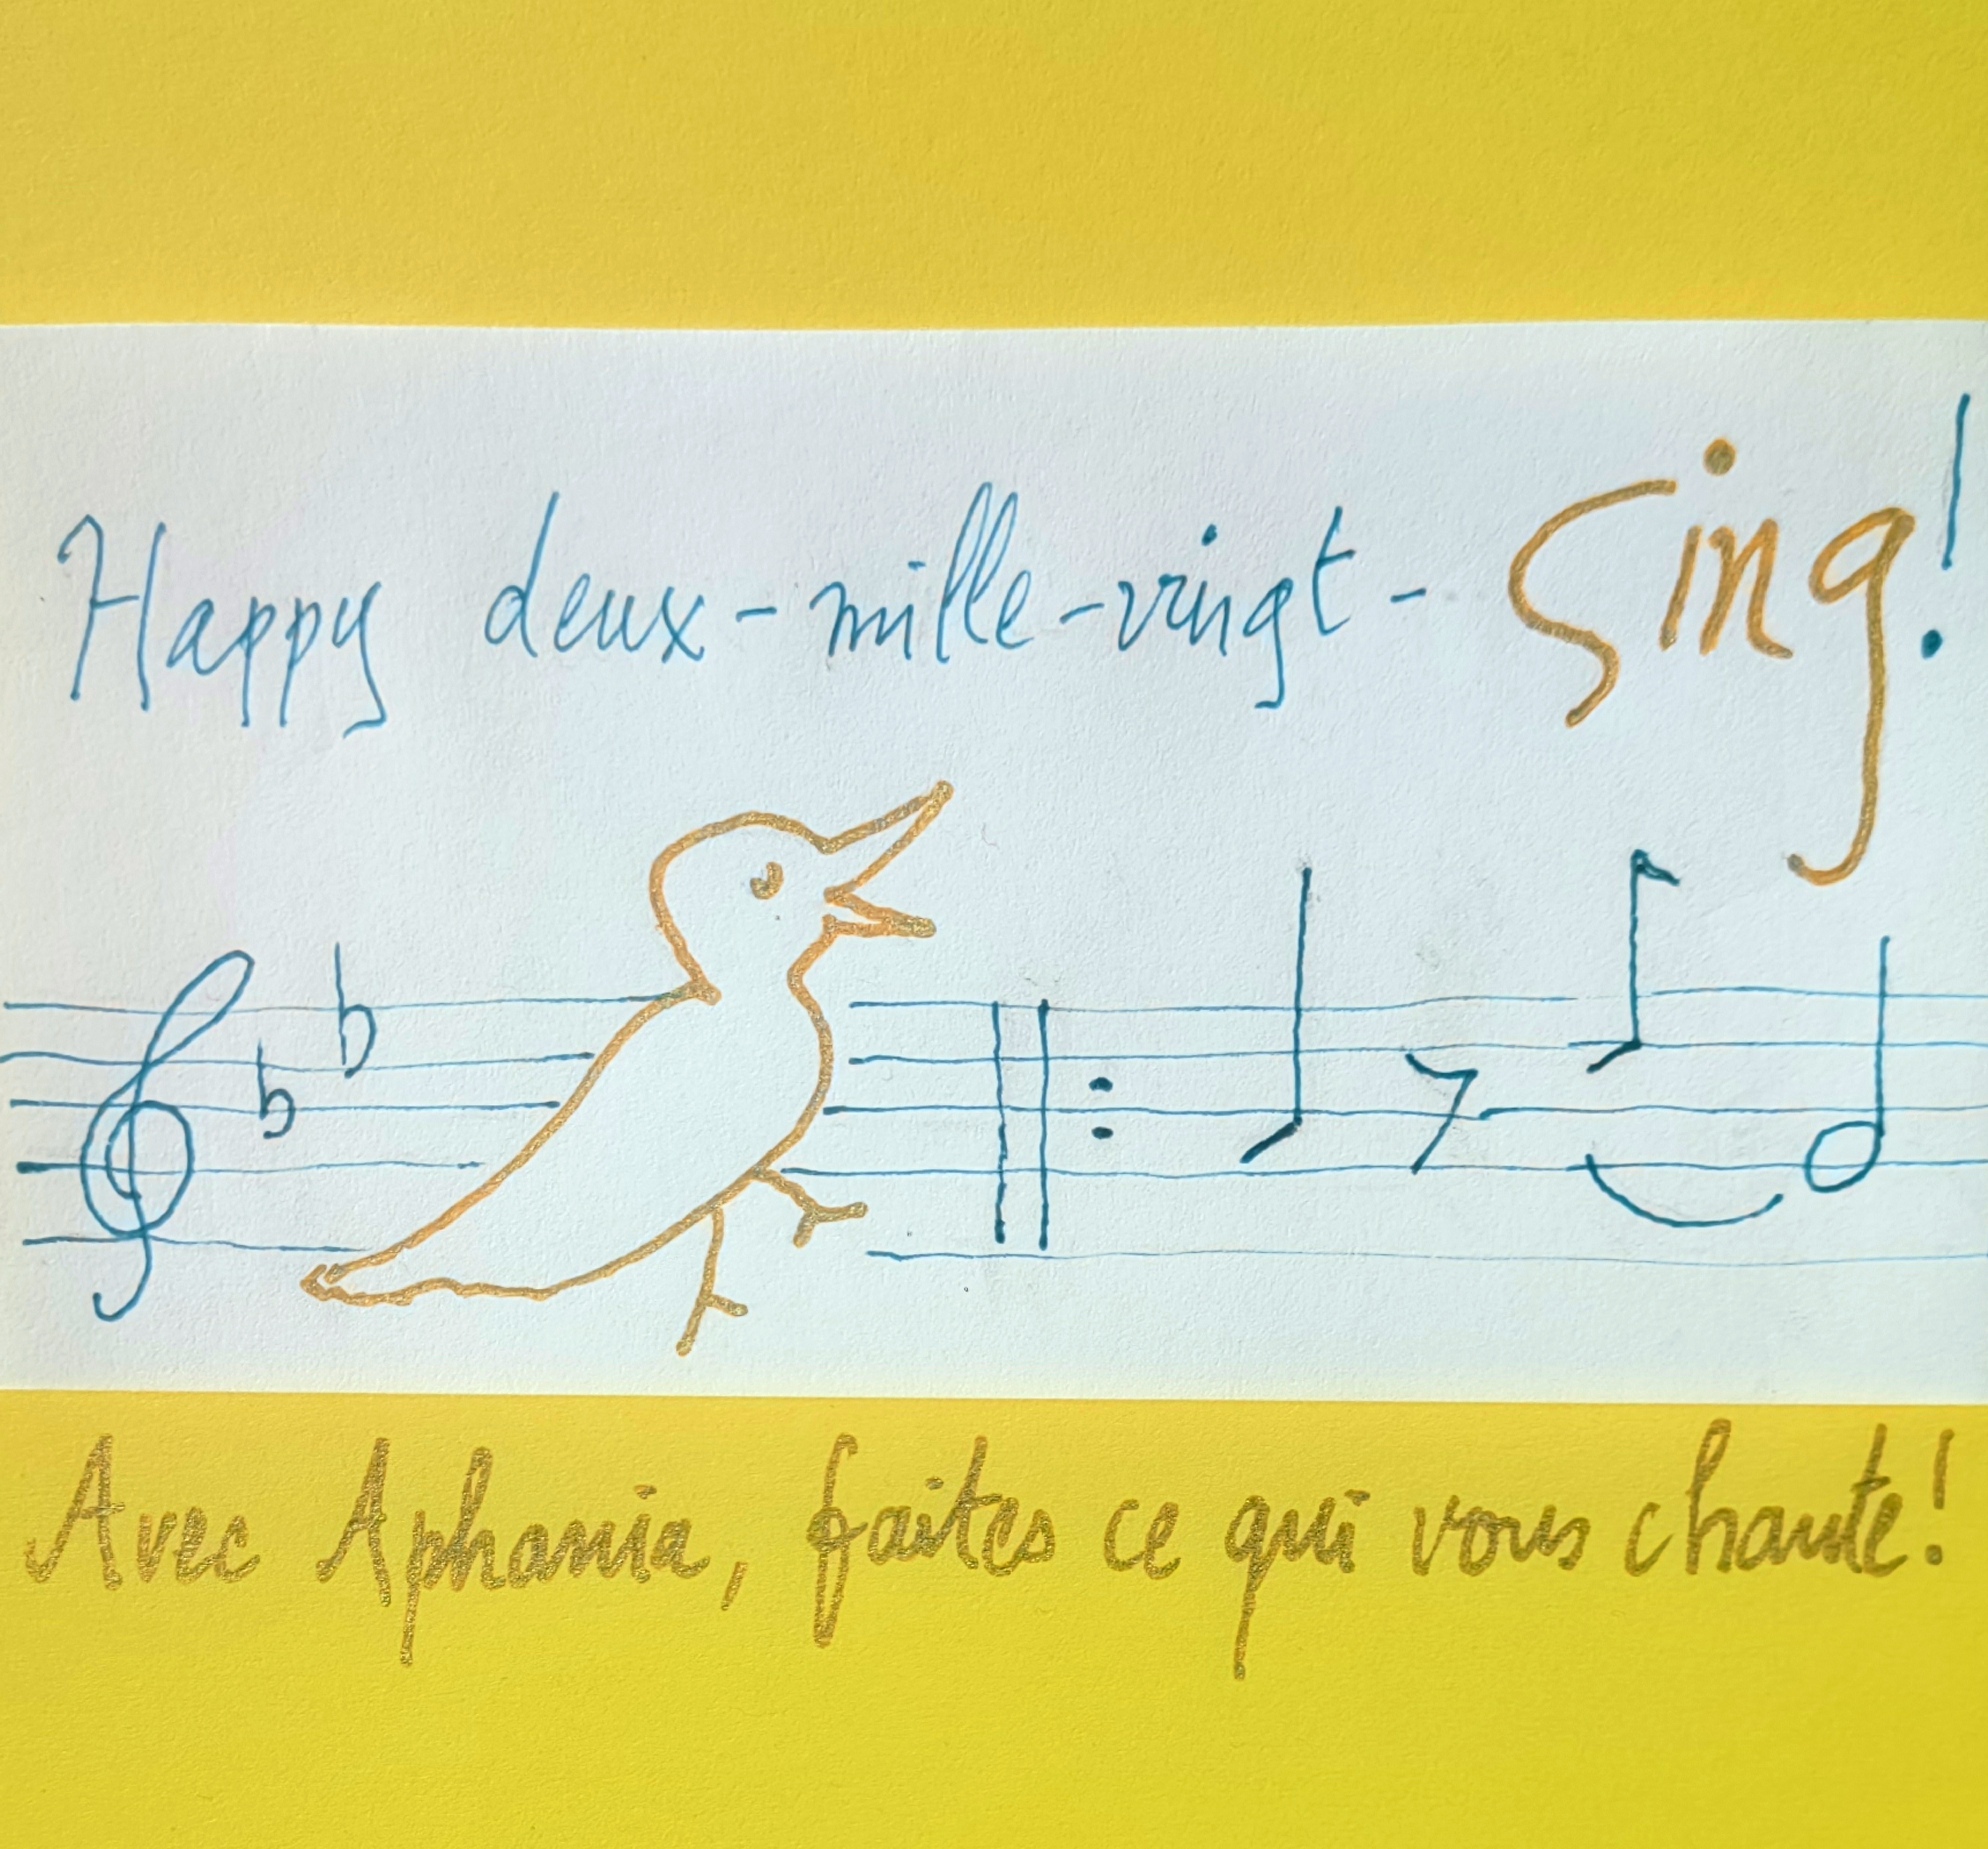 Happy deux-mille-vingt-Sing!
Avec Aphania, faites ce qui vous chante!